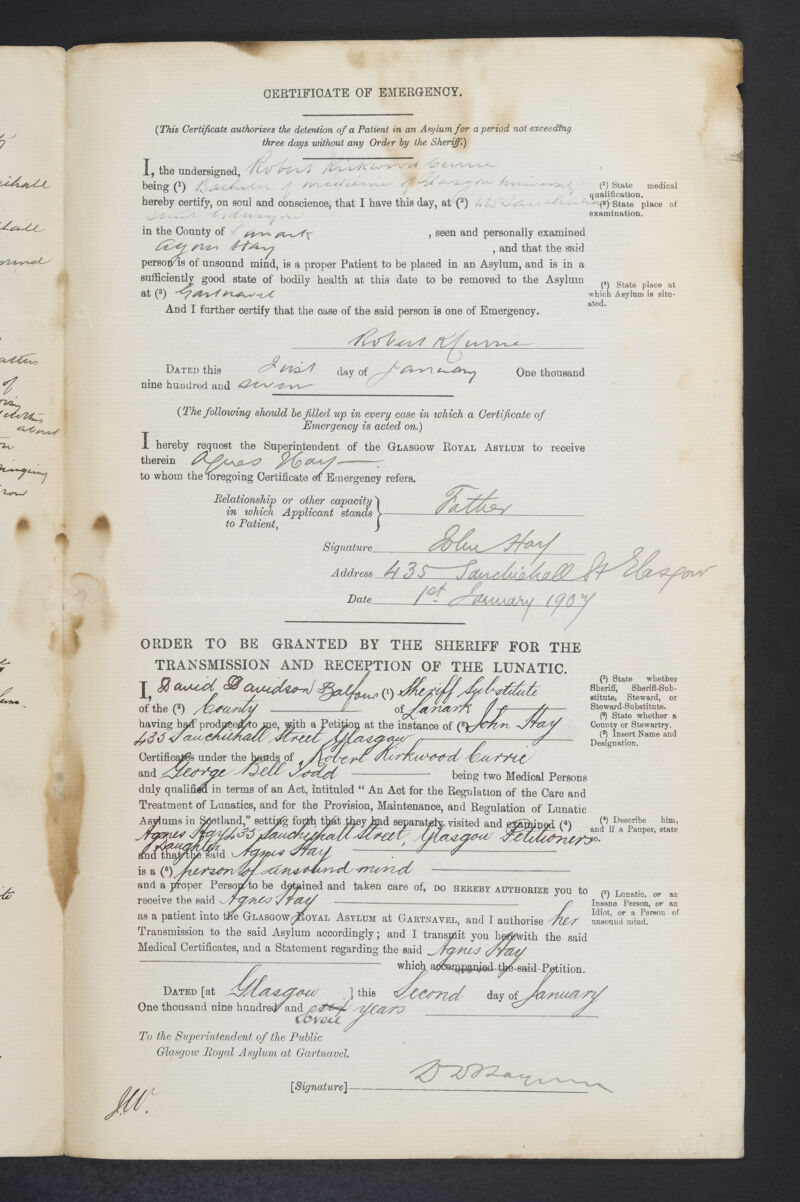 CERTIFICATE OF EMERGENCY.
(This Certificate authorizes the detention of a Patient in an Asylum for a period not exceeding
three days without any Order by the Sheriff.)
I, the undersigned, Robert Kirkwood Currie
being (¹) Bachelor of Medicine of Glasgow University
(¹) State medical
qualification.
hereby certify, on soul and conscience, that I have this day, at (²) 435 Sauchiehall
Street Glasgow
(²) State place of
examination.
in the County of Lanark , seen and personally examined
Agnes Hay , and that the said
person is of unsound mind, is a proper Patient to be placed in an Asylum, and is in a
sufficiently good state of bodily health at this date to be removed to the Asylum
at (³) Gartnavel
(³) State place at
which Asylum is situ-
ated.
And I further certify that the case of the said person is one of Emergency.
Robert K Currie
DATED this First day of January One thousand
nine hundred and seven
(The following should be filled up in every case in which a Certificate of
Emergency is acted on.)
I hereby request the Superintendent of the GLASGOW ROYAL ASYLUM to receive
therein Agnes Hay
to whom the foregoing Certificate of Emergency refers.
Relationship or other capacity
in which Applicant stands
to Patient, Father
Signature John Hay
Address 435 Sauchiehall St Glasgow
Date 1st January 1907
ORDER TO BE GRANTED BY THE SHERIFF FOR THE
TRANSMISSION AND RECEPTION OF THE LUNATIC.
I, David Davidson Balfour (¹) Sheriff Substitute
(¹) State whether
Sheriff, Sheriff-Sub-
stitute, Steward, or
Steward-Substitute.
of the (²) County of Lanark
(²) State whether a
County or Stewartry.
having had produced to me, with a Petition at the instance of (³) John Hay
435 Sauchiehall Street Glasgow
(³) Insert Name and
Designation.
Certificates under the hands of Robert Kirkwood Currie
and George Bell Todd being two Medical Persons
duly qualified in terms of an Act, intituled "An Act for the Regulation of the Care and
Treatment of Lunatics, and for the Provision, Maintenance, and Regulation of Lunatic
Asylums in Scotland," setting forth that they had separately visited and examined (⁴)
Agnes Hay 435 Sauchiehall Street, Glasgow Petitioners
Daughter
(⁴) Describe him,
and if a Pauper, state
so.
and that the said Agnes Hay
is a (⁵) person of unsound mind
and a proper Person to be detained and taken care of, DO HEREBY AUTHORIZE you to
receive the said Agnes Hay
(⁵) Lunatic, or an
Insane Person, or an
Idiot, or a Person of
unsound mind.
as a patient into the GLASGOW ROYAL ASYLUM at GARTNAVEL, and I authorise her
Transmission to the said Asylum accordingly; and I transmit you herewith the said
Medical Certificates, and a Statement regarding the said Agnes Hay
which accompanied the said Petition.
DATED [at Glasgow ] this Second day of January
One thousand nine hundred and six years
seven
To the Superintendent of the Public
Glasgow Royal Asylum at Gartnavel.
[Signature]
J.W.